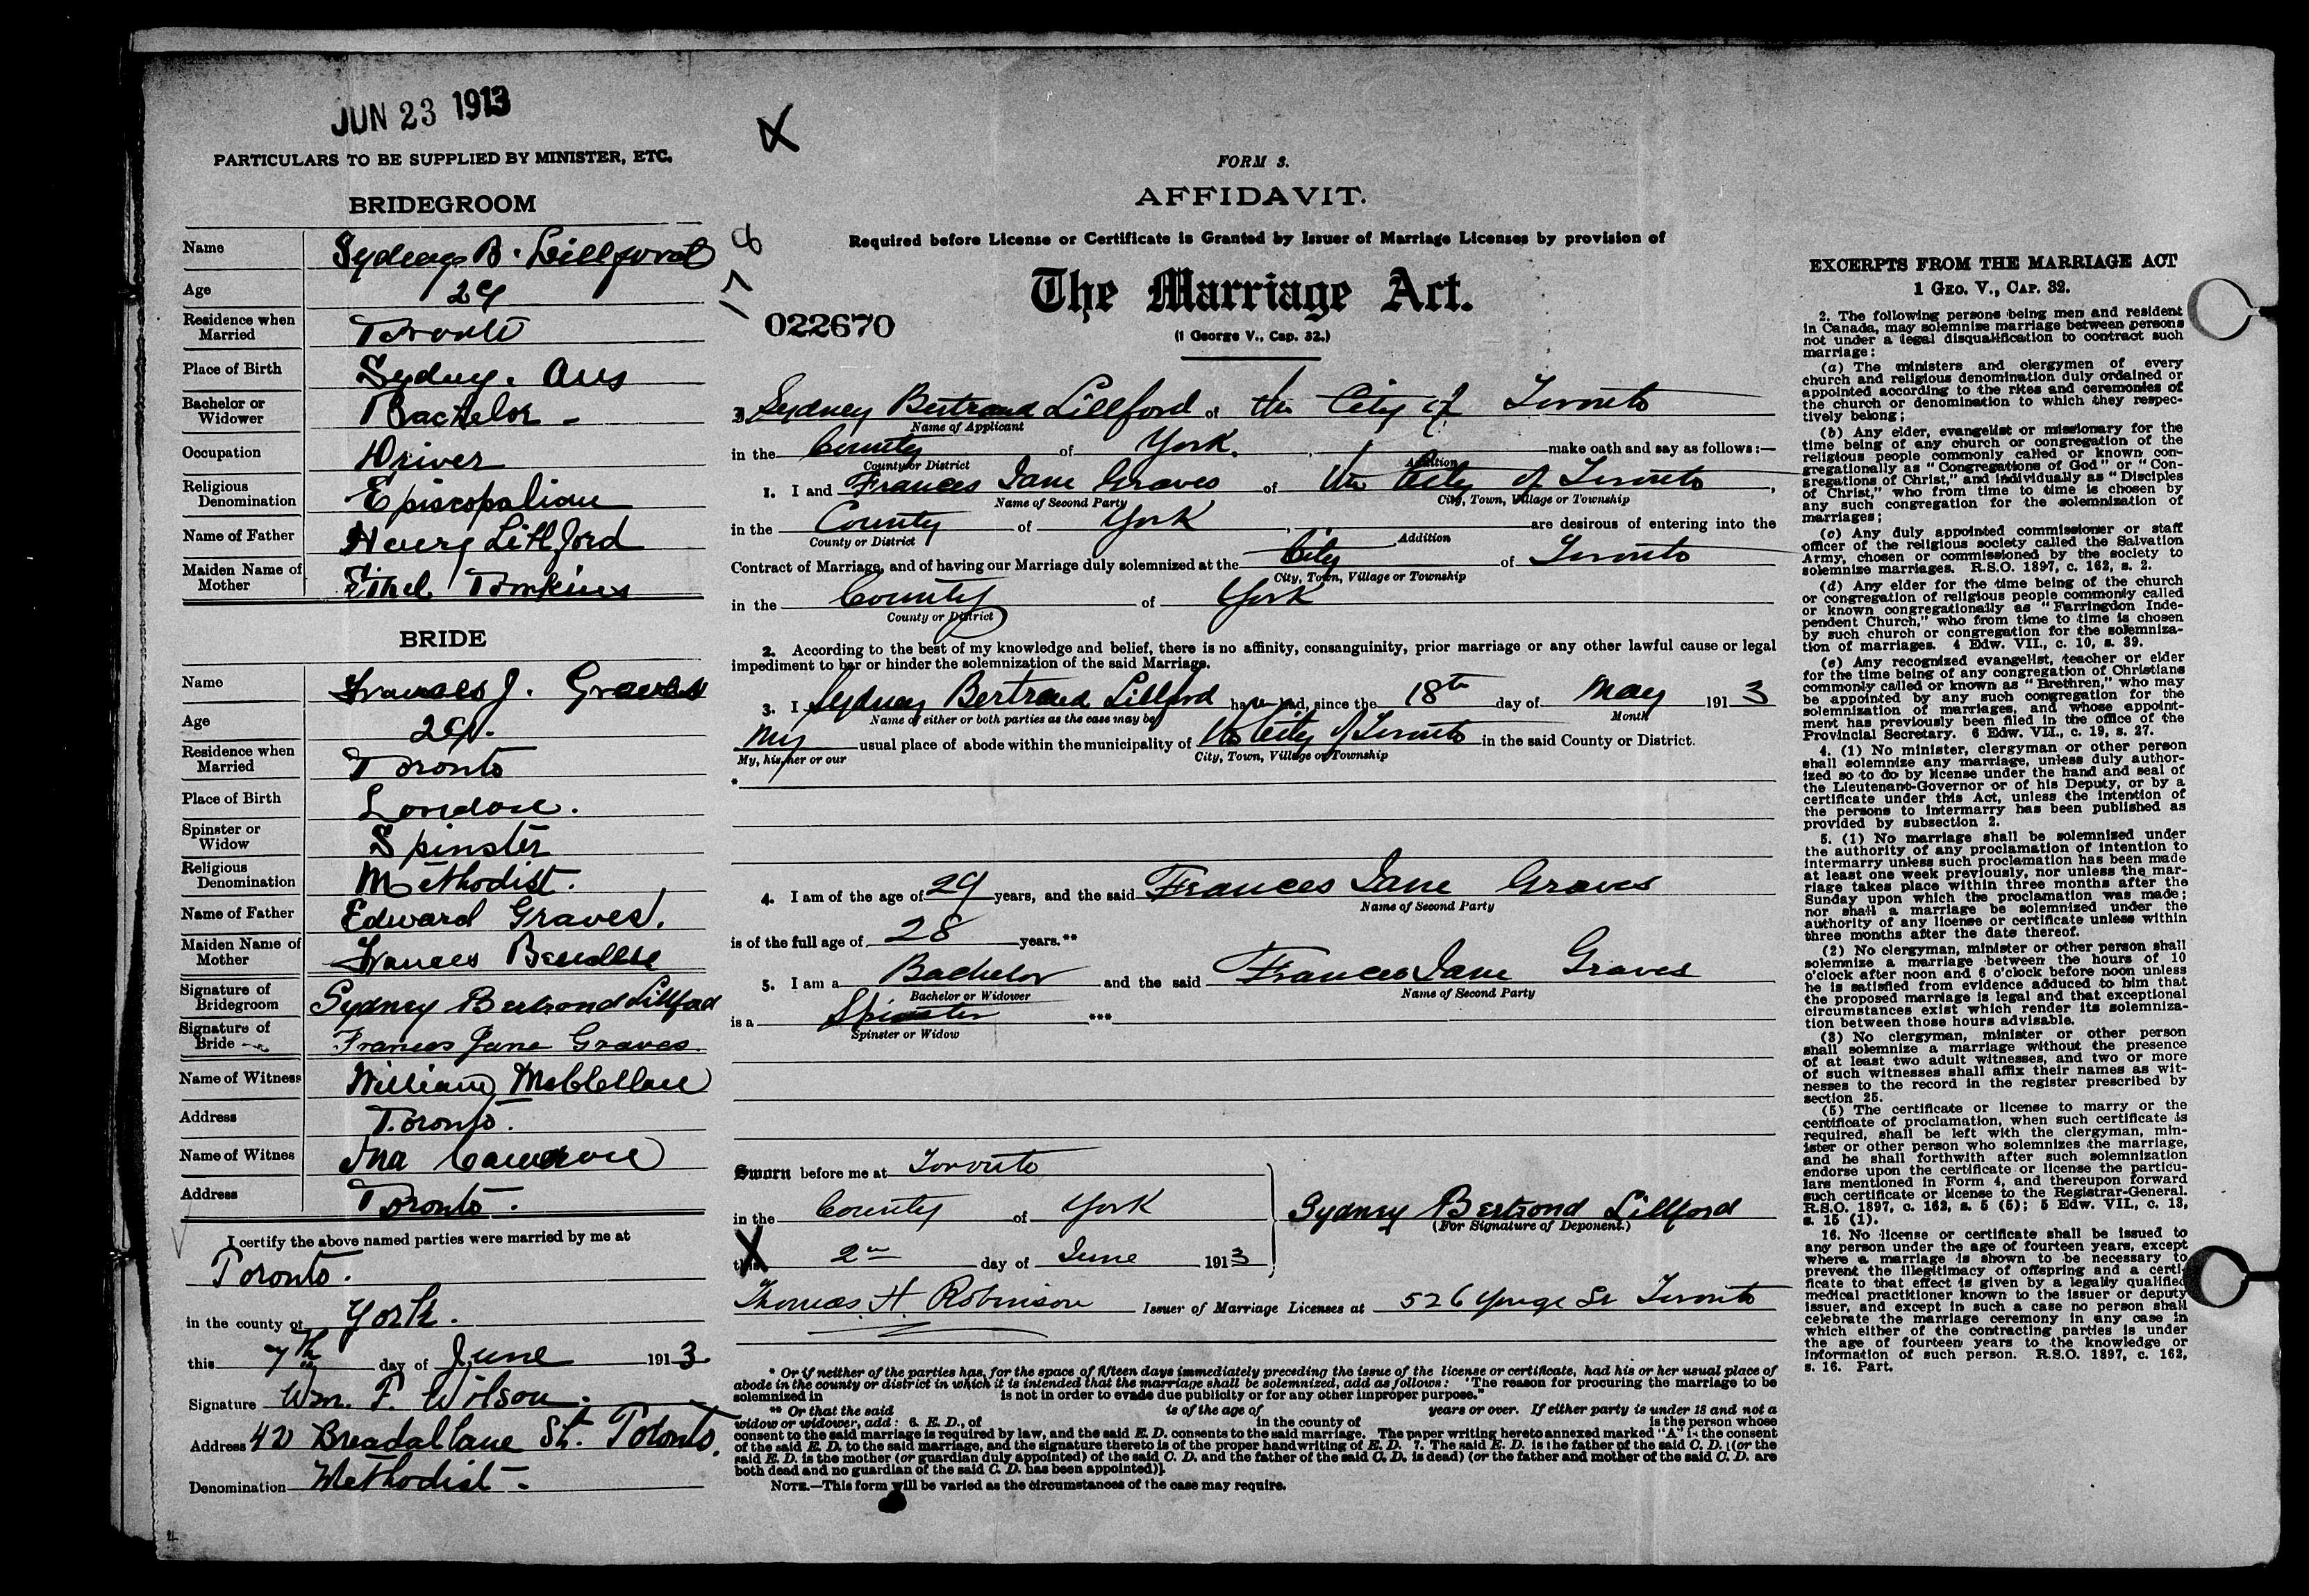 JUN 23 1913
PARTICULARS TO BE SUPPLIED BY MINISTER, ETC.
BRIDEGROOM
Name Sydney B. Lillford
Age 29
Residence when Married Toronto
Place of Birth Sydney. Aus
Bachelor or Widower Bachelor -
Occupation Driver
Religious Denomination Episcopalian
Name of Father Henry Lillford
Maiden Name of Mother Ethel Tomkins
BRIDE
Name Frances J. Graves
Age 29.
Residence when Married Toronto
Place of Birth London.
Spinster or Widow Spinster
Religious Denomination Methodist.
Name of Father Edward Graves.
Maiden Name of Mother Frances
Signature of Bridegroom Sydney Bertrond Lillford
Signature of Bride Frances Jane Graves
Name of Witness William McClellan
Address Toronto.
Name of Witnes Ina Cameron
Address Toronto.
I certify the above named parties were married by me at
Toronto.
in the county of York.
this 7th day of June 1913.
Signature Wm. F. Wilson.
Address 42 Breadalbane St. Toronto.
Denomination Methodist -
X
178
022670
FORM 3.
AFFIDAVIT.
Required before License or Certificate is Granted by Issuer of Marriage Licenses by provision of
The Marriage Act.
(1 George V., Cap. 32.)
I Sydney Bertrand Lillford of the City of Toronto
Name of Applicant
in the County of York. make oath and say as follows:—
County or District Addition
1. I and Frances Jane Graves of the City of Toronto,
Name of Second Party City, Town, Village or Township
in the County of York, are desirous of entering into the
County or District Addition
Contract of Marriage, and of having our Marriage duly solemnized at the City of Toronto
City, Town, Village or Township
in the County of York
County or District
2. According to the best of my knowledge and belief, there is no affinity, consanguinity, prior marriage or any other lawful cause or legal
impediment to bar or hinder the solemnization of the said Marriage.
3. I Sydney Bertrand Lillford have had, since the 18th day of May 1913
Name of either or both parties as the case may be Month
My usual place of abode within the municipality of the City of Toronto in the said County or District.
My, his, her or our City, Town, Village or Township
*
4. I am of the age of 29 years, and the said Frances Jane Graves
Name of Second Party
is of the full age of 28 years.**
5. I am a Bachelor and the said Frances Jane Graves
Bachelor or Widower Name of Second Party
is a Spinster ***
Spinster or Widow
Sworn before me at Toronto
in the County of York
Sydney Bertrond Lillford
(For Signature of Deponent.)
this 2nd day of June 1913
Thomas H. Robinson Issuer of Marriage Licenses at 526 Yonge St Toronto
* Or if neither of the parties has, for the space of fifteen days immediately preceding the issue of the license or certificate, had his or her usual place of
abode in the county or district in which it is intended that the marriage shall be solemnized, add as follows: 'The reason for procuring the marriage to be
solemnized in is not in order to evade due publicity or for any other improper purpose."
** Or that the said is of the age of years or over. If either party is under 18 and not a
widow or widower, add: 6. E. D., of in the county of is the person whose
consent to the said marriage is required by law, and the said E. D. consents to the said marriage. The paper writing hereto annexed marked "A" is the consent
of the said E. D. to the said marriage, and the signature thereto is of the proper handwriting of E. D. 7. The said E. D. is the father of the said C. D. [(or the
said E. D. is the mother (or guardian duly appointed) of the said C. D. and the father of the said C. D. is dead) (or the father and mother of the said C. D. are
both dead and no guardian of the said C. D. has been appointed)].
NOTE.—This form will be varied as the circumstances of the case may require.
EXCERPTS FROM THE MARRIAGE ACT
1 GEO. V., CAP. 32.
2. The following persons being men and resident
in Canada, may solemnize marriage between persons
not under a legal disqualification to contract such
marriage:
(a) The ministers and clergymen of every
church and religious denomination duly ordained or
appointed according to the rites and ceremonies of
the church or denomination to which they respec-
tively belong;
(b) Any elder, evangelist or missionary for the
time being of any church or congregation of the
religious people commonly called or known con-
gregationally as "Congregations of God" or "Con-
gregations of Christ," and individually as "Disciples
of Christ," who from time to time is chosen by
any such congregation for the solemnization of
marriages;
(c) Any duly appointed commissioner or staff
officer of the religious society called the Salvation
Army, chosen or commissioned by the society to
solemnize marriages. R.S.O. 1897, c. 162, s. 2.
(d) Any elder for the time being of the church
or congregation of religious people commonly called
or known congregationally as "Farringdon Inde-
pendent Church," who from time to time is chosen
by such church or congregation for the solemniza-
tion of marriages. 4 Edw. VII., c. 10, s. 39.
(e) Any recognized evangelist, teacher or elder
for the time being of any congregation of Christians
commonly called or known as "Brethren," who may
be appointed by any such congregation for the
solemnization of marriages, and whose appoint-
ment has previously been filed in the office of the
Provincial Secretary. 6 Edw. VII., c. 19, s. 27.
4. (1) No minister, clergyman or other person
shall solemnize any marriage, unless duly author-
ized so to do by license under the hand and seal of
the Lieutenant-Governor or of his Deputy, or by a
certificate under this Act, unless the intention of
the persons to intermarry has been published as
provided by subsection 2.
5. (1) No marriage shall be solemnized under
the authority of any proclamation of intention to
intermarry unless such proclamation has been made
at least one week previously, nor unless the mar-
riage takes place within three months after the
Sunday upon which the proclamation was made;
nor shall a marriage be solemnized under the
authority of any license or certificate unless within
three months after the date thereof.
(2) No clergyman, minister or other person shall
solemnize a marriage between the hours of 10
o'clock after noon and 6 o'clock before noon unless
he is satisfied from evidence adduced to him that
the proposed marriage is legal and that exceptional
circumstances exist which render its solemniza-
tion between those hours advisable.
(3) No clergyman, minister or other person
shall solemnize a marriage without the presence
of at least two adult witnesses, and two or more
of such witnesses shall affix their names as wit-
nesses to the record in the register prescribed by
section 25.
(5) The certificate or license to marry or the
certificate of proclamation, when such certificate is
required, shall be left with the clergyman, min-
ister or other person who solemnizes the marriage,
and he shall forthwith after such solemnization
endorse upon the certificate or license the particu-
lars mentioned in Form 4, and thereupon forward
such certificate or license to the Registrar-General.
R.S.O. 1897, c. 162, s. 5 (5); 5 Edw. VII., c. 13,
s. 15 (1).
16. No license or certificate shall be issued to
any person under the age of fourteen years, except
where a marriage is shown to be necessary to
prevent the illegitimacy of offspring and a certi-
ficate to that effect is given by a legally qualified
medical practitioner known to the issuer or deputy
issuer, and except in such a case no person shall
celebrate the marriage ceremony in any case in
which either of the contracting parties is under
the age of fourteen years to the knowledge or
information of such person. R.S.O. 1897, c. 162,
s. 16. Part.